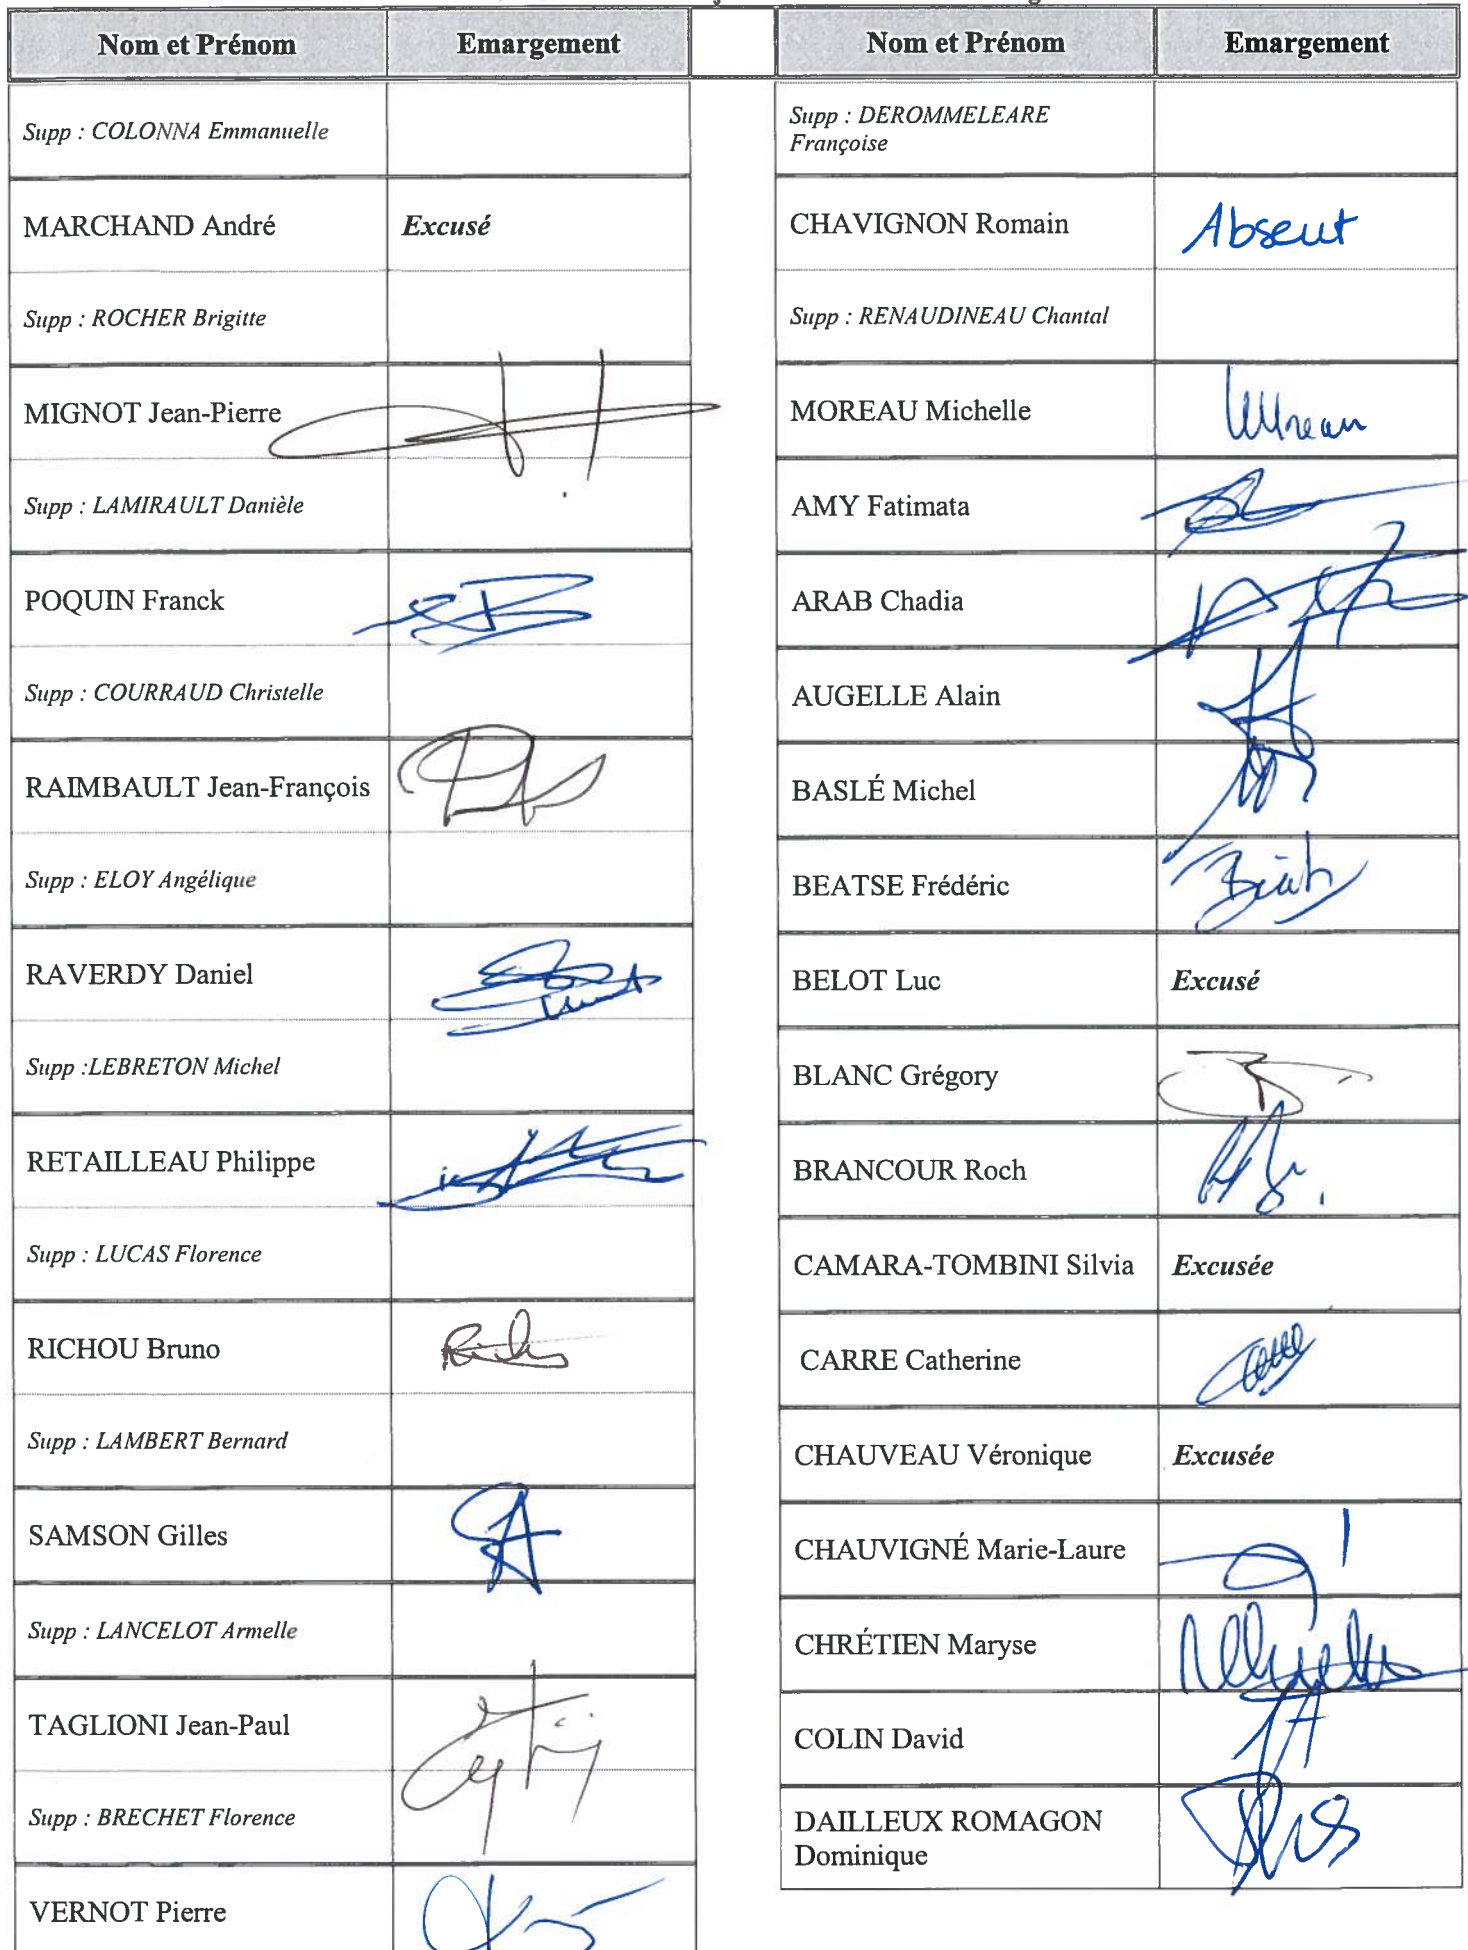 Nom et Prénom
Emargement
Supp : COLONNA Emmanuelle
MARCHAND André
Excusé
Supp : ROCHER Brigitte
MIGNOT Jean-Pierre
Supp : LAMIRAULT Danièle
POQUIN Franck
Supp : COURRAUD Christelle
RAIMBAULT Jean-François
Supp : ELOY Angélique
RAVERDY Daniel
Supp :LEBRETON Michel
RETAILLEAU Philippe
Supp : LUCAS Florence
RICHOU Bruno
Supp : LAMBERT Bernard
SAMSON Gilles
Supp : LANCELOT Armelle
TAGLIONI Jean-Paul
Supp : BRECHET Florence
VERNOT Pierre
Nom et Prénom
Emargement
Supp : DEROMMELEARE
Françoise
CHAVIGNON Romain
Absent
Supp : RENAUDINEAU Chantal
MOREAU Michelle
AMY Fatimata
ARAB Chadia
AUGELLE Alain
BASLÉ Michel
BEATSE Frédéric
BELOT Luc
Excusé
BLANC Grégory
BRANCOUR Roch
CAMARA-TOMBINI Silvia
Excusée
CARRE Catherine
CHAUVEAU Véronique
Excusée
CHAUVIGNÉ Marie-Laure
CHRÉTIEN Maryse
COLIN David
DAILLEUX ROMAGON
Dominique